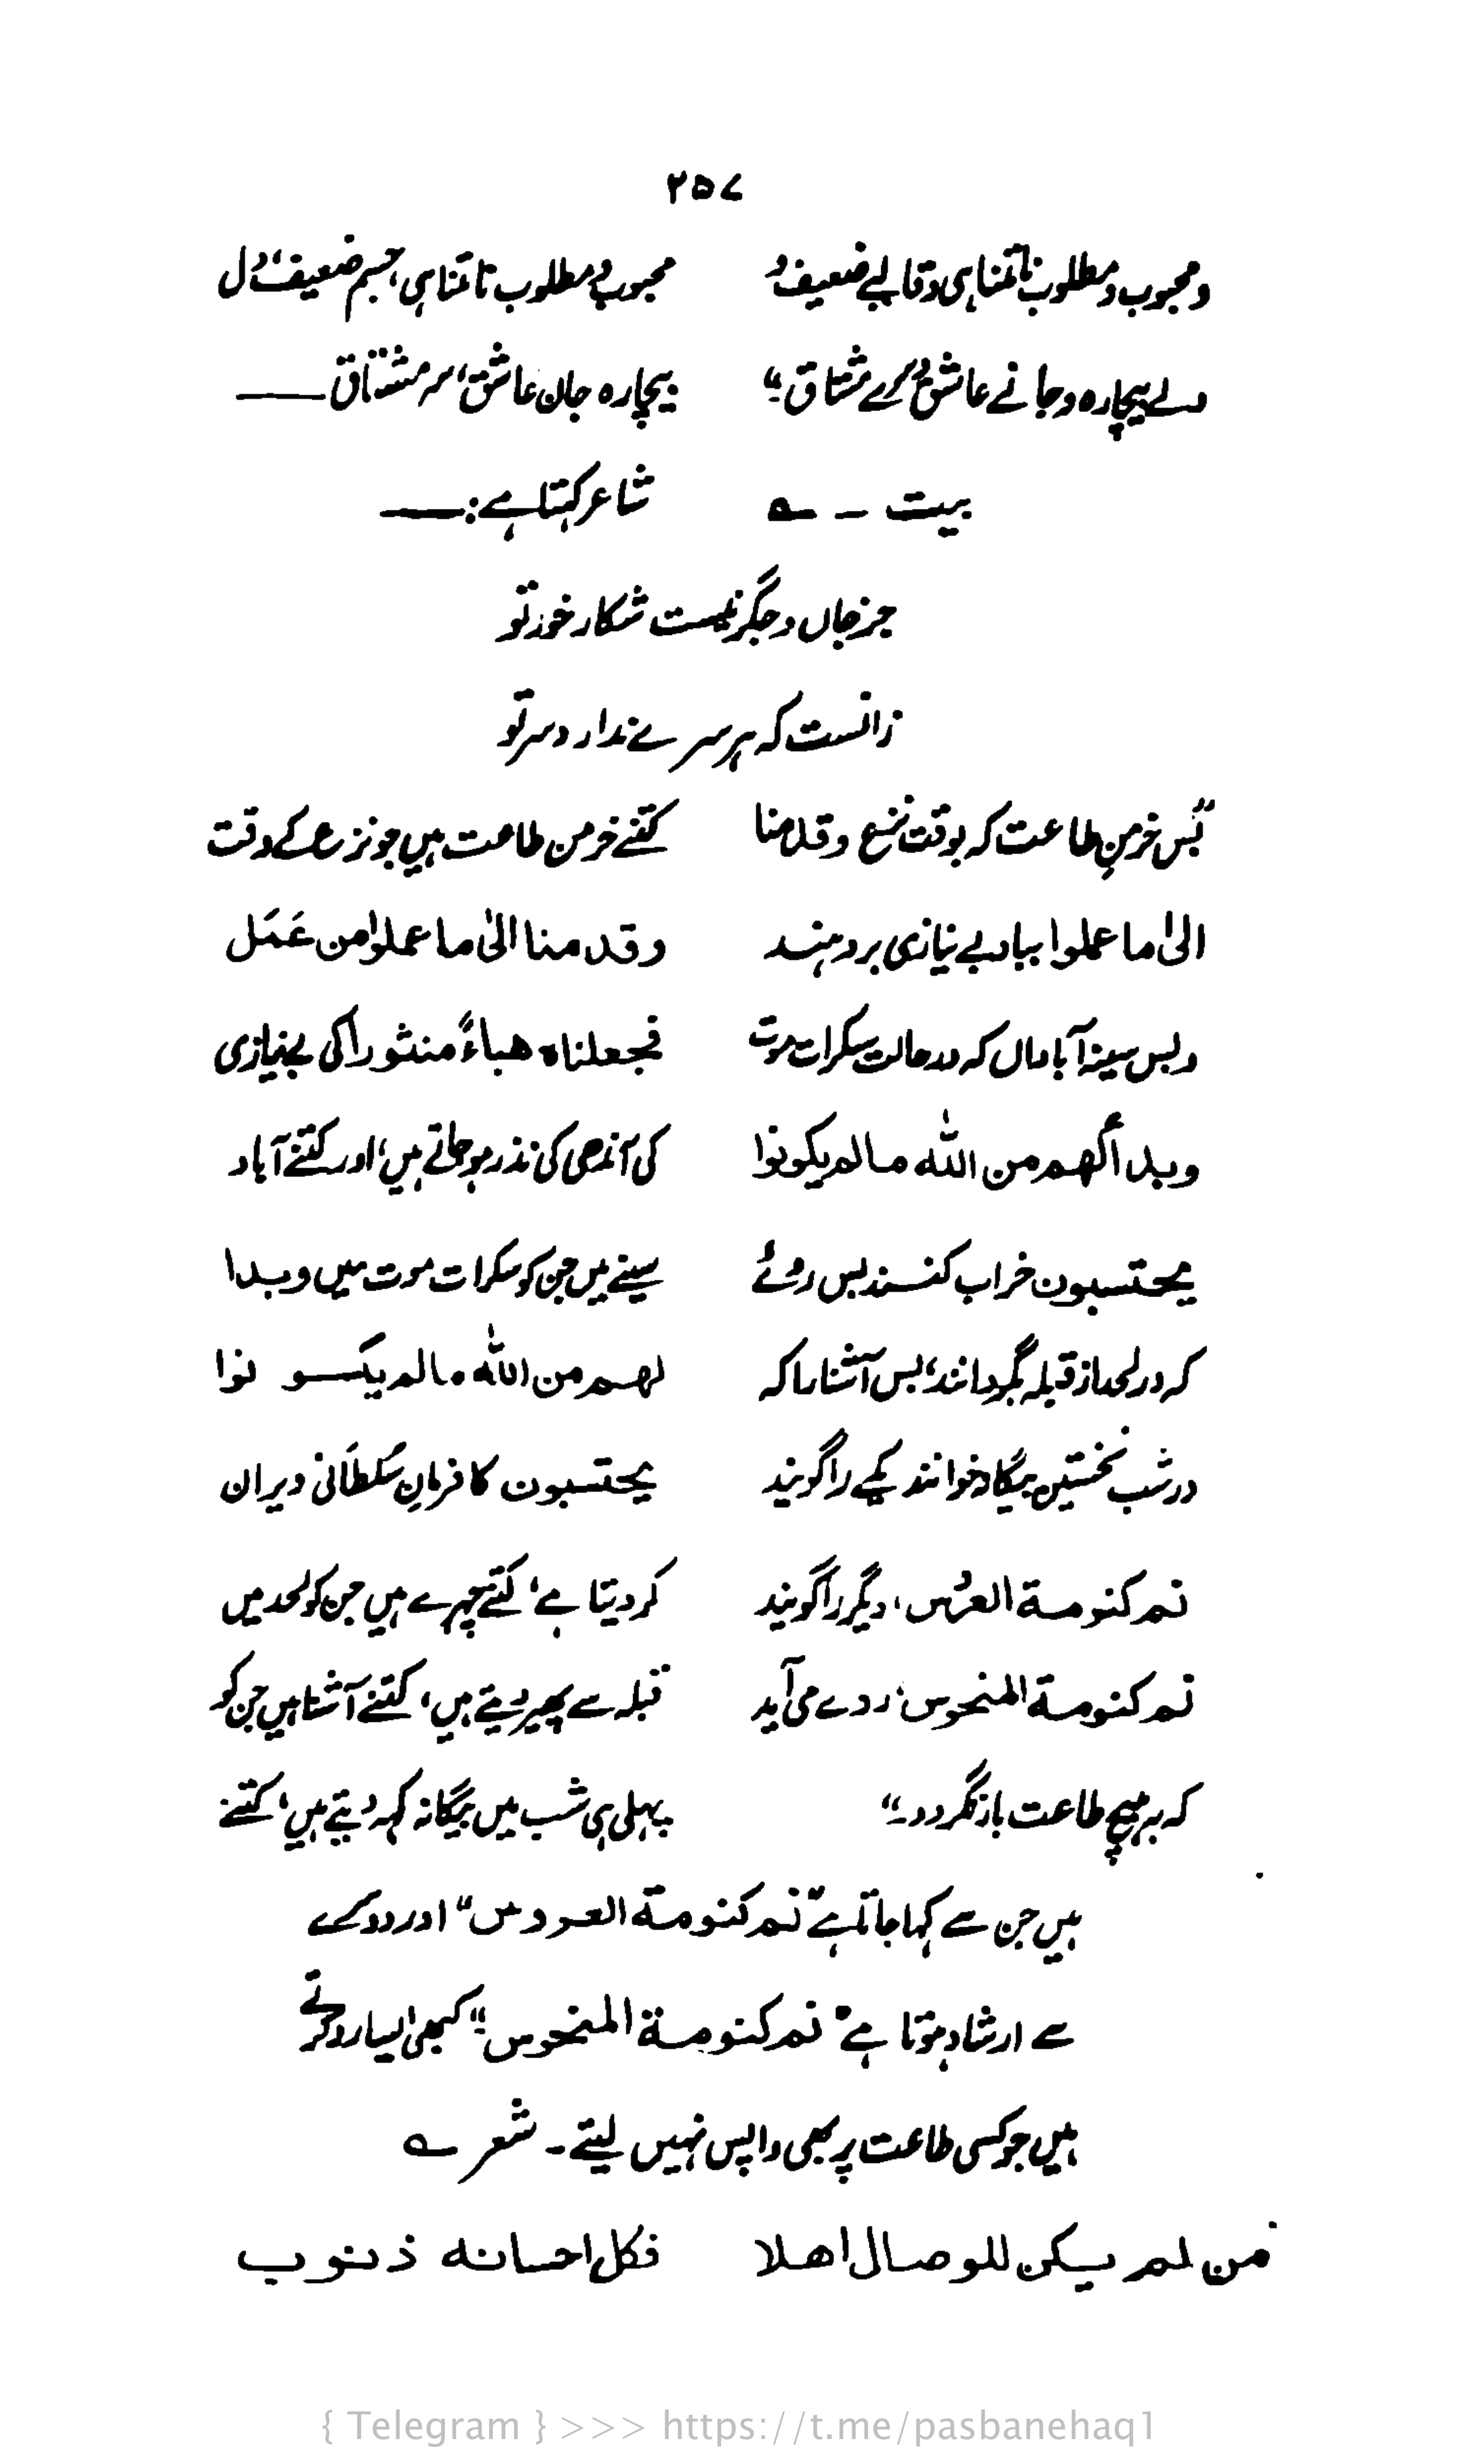 ۲۵۷
و محبوب و مطلوب نامتناہی و قالبے ضعیف و
دلے بیچارہ و جانے عاشق و سرے مشتاق"
بیت ـ ؎
محبوب و مطلوب نامتناہی، جسم ضعیف، دل
بیچارہ جان عاشق، سر مشتاق ــــ
شاعر کہتا ہے: ــــ
جز جاں و جگر نیست شکار خور تو
زانست کہ ہر سرے ندارد سر تو
"بس خرمنِ طاعت کہ بوقت نزع وقدمنا
الیٰ ما عملوا بباد بے نیازی بردہند
وبس سینۂ آباداں کہ در حالت سکرات موت
وبدأ لهم من الله مالم یکونوا
یحتسبون خراب کنند بس روئے
کہ در لحد از قبلہ بگردانند، بس آشنا را کہ
در شب نخستیں بیگانہ خوانند یکے را گویند
نم کنومة العرُس، دیگر را گویند
نم کنومة المنحوس، ردے می آید
کہ بہ ہیچ طاعت باز نگردد۔"
کتنے خرمن طاعت ہیں جو نزع کے وقت
وقدمنا الیٰ ما عملوا من عَمَل
فجعلناه هباءً منثورا کی بے نیازی
کی آندھی کی نذر ہو جاتے ہیں، اور کتنے آباد
سینے ہیں جن کو سکرات موت میں وبدا
لهم من الله مالم یکـــو نوا
یحتسبون کا فرمانِ سُلطَانی ویران
کر دیتا ہے، کتنے چہرے ہیں جن کو لحد میں
قبلہ سے پھیر دیتے ہیں، کتنے آشنا ہیں جن کو
پہلی ہی شب میں بیگانہ کہہ دیتے ہیں، کتنے
ہیں جن سے کہا جاتا ہے "نم کنومة العروس" اور دوسرے
سے ارشاد ہوتا ہے "نم کنومة المنحوس" کبھی ایسا رد کرتے
ہیں جو کسی طاعت پر بھی واپس نہیں لیتے۔ شعر ؎
من لم یکن للوصال اهلا فکل احسانه ذنوب
{ Telegram } >>> https://t.me/pasbanehaq1